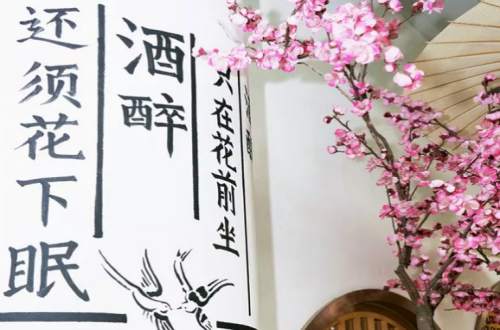 只在花前坐
酒醉
还须花下眠